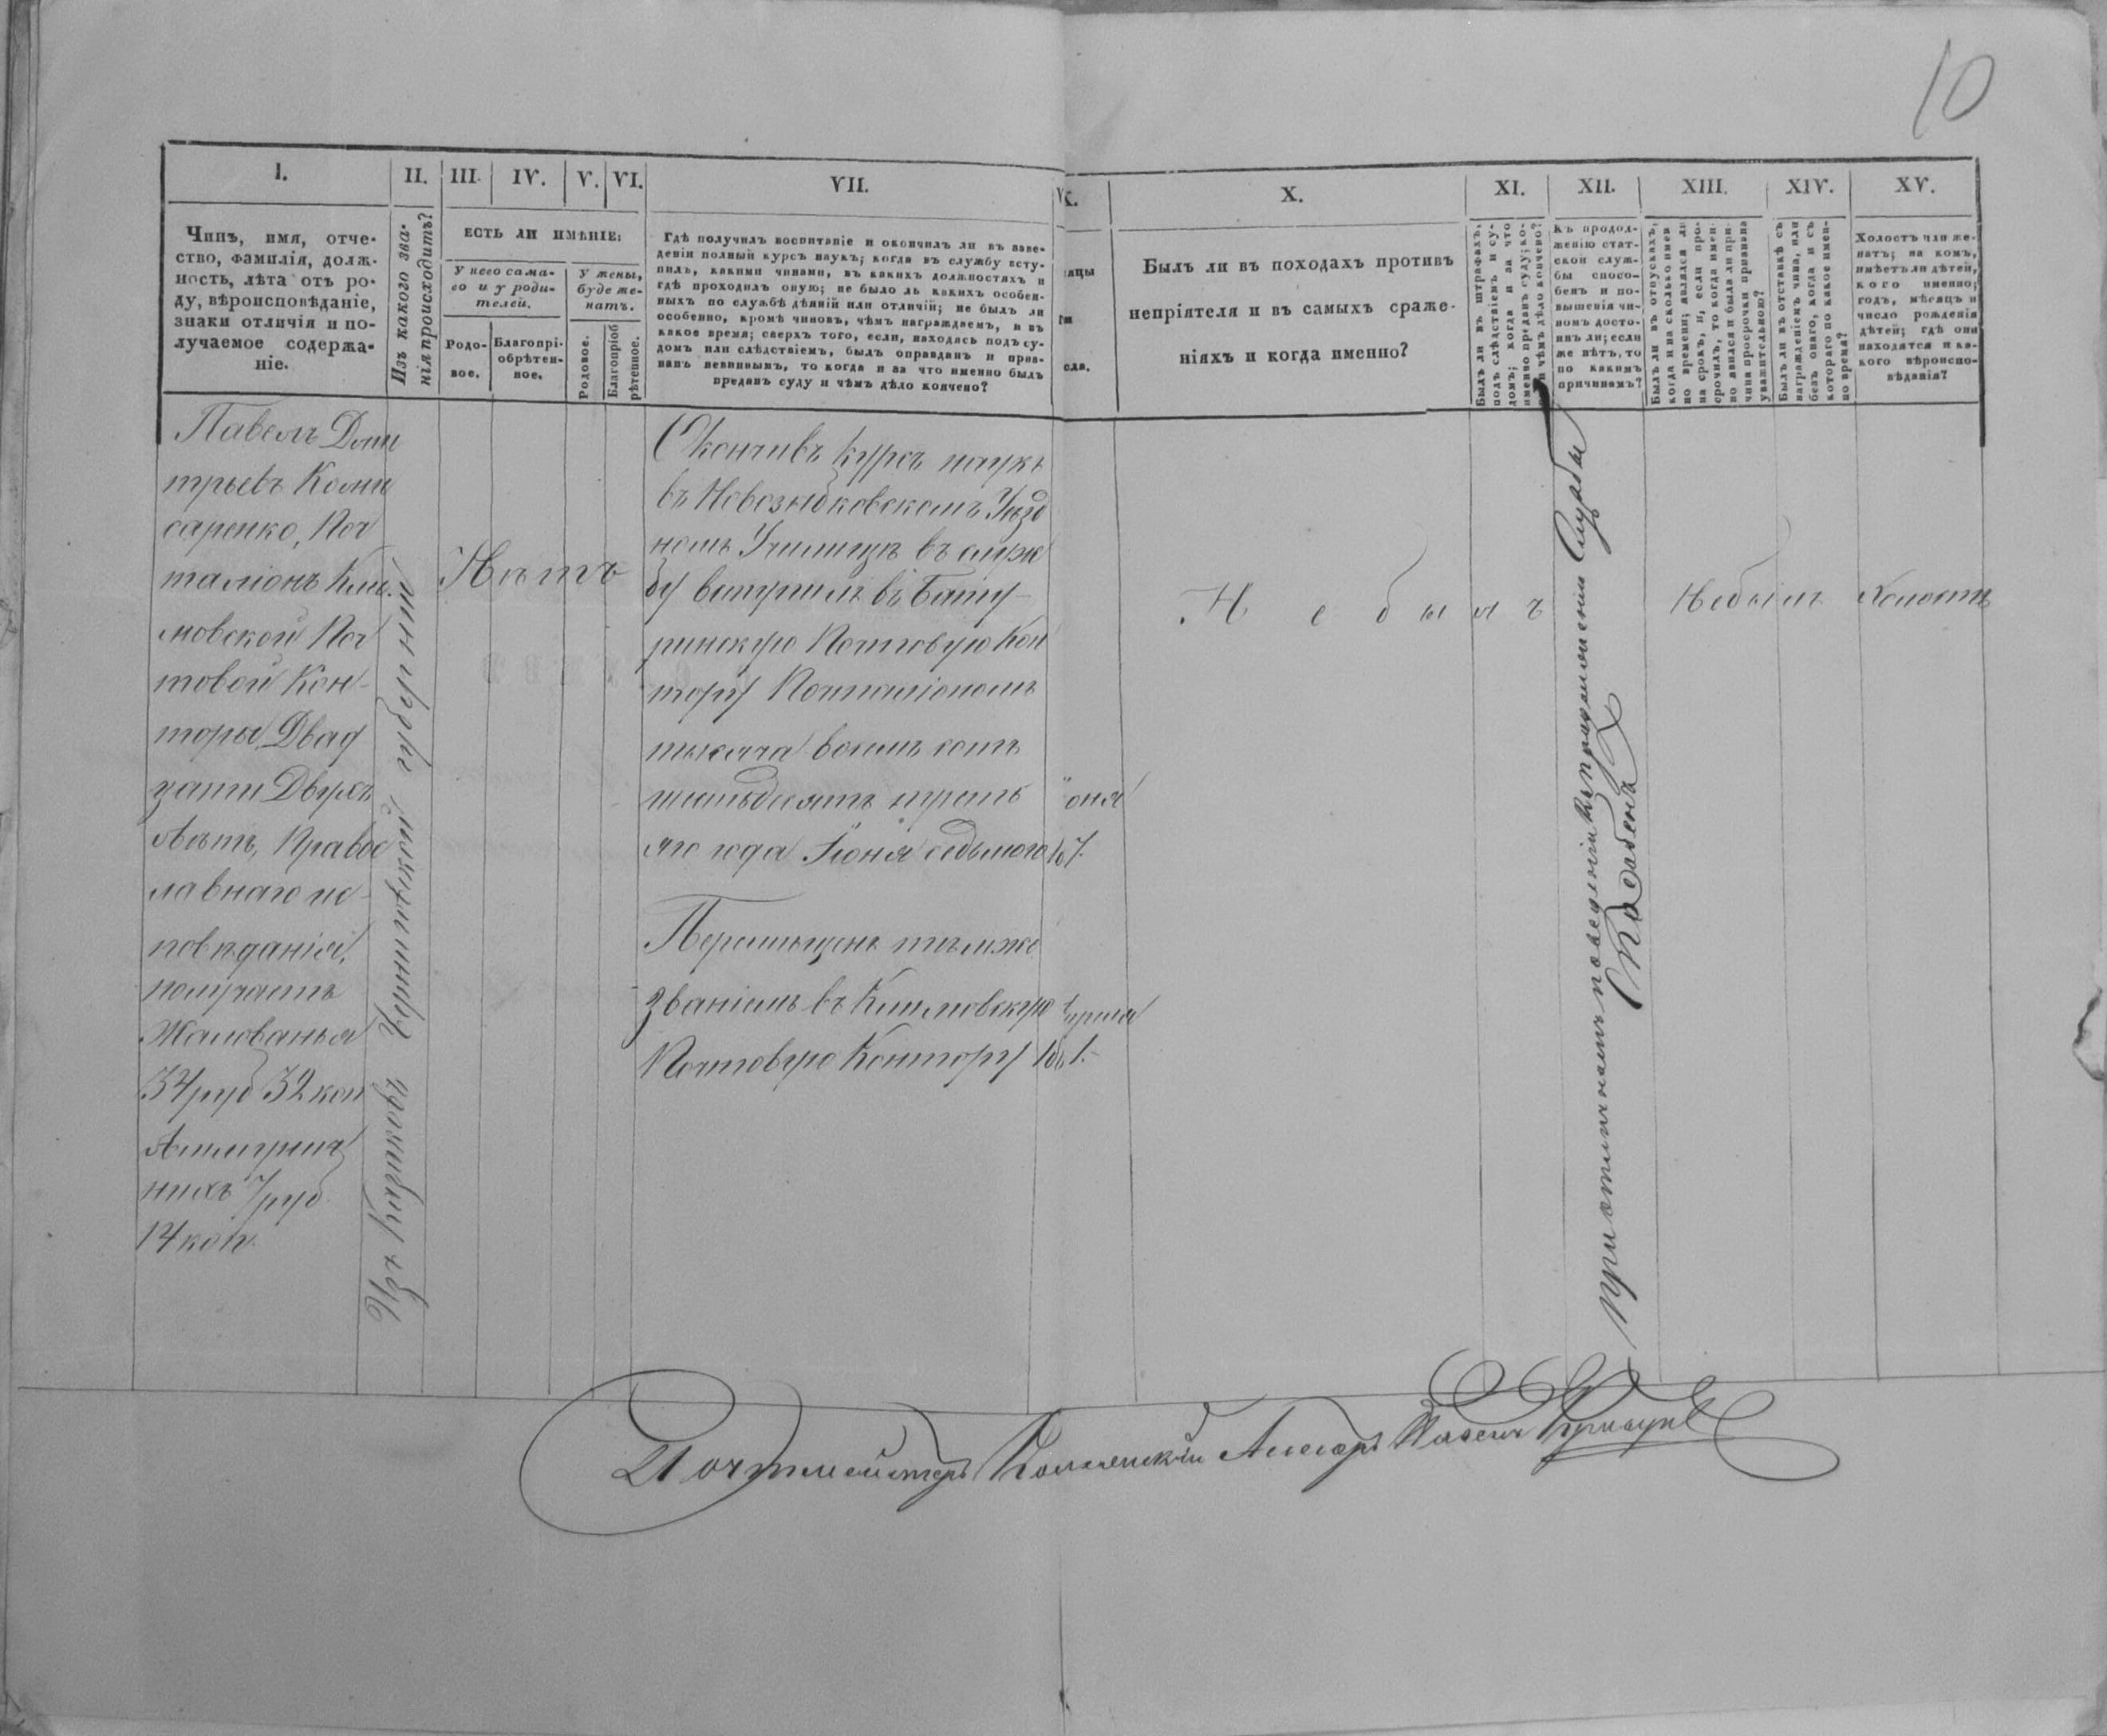 10
I.
II.
III.
IV.
V.
VI.
VII.
X.
XI.
XII.
XIII.
XIV.
XV.
Чинъ, имя, отче-
ство, фамилія, долж-
ность, лѣта отъ ро-
ду, вѣроисповѣданіе,
знаки отличія и по-
лучаемое содержа-
ніе.
Изъ какого зва-
нія происходитъ?
ЕСТЬ ЛИ ИМѢНІЕ:
У него сама-
го и у роди-
телей.
У жены,
буде же-
натъ.
Родо-
вое.
Благопрі-
обрѣтен-
ное.
Родовое.
Благопріоб
рѣтенное.
Гдѣ получилъ воспитаніе и окончилъ ли въ заве-
деніи полный курсъ наукъ; когда въ службу всту-
пилъ, какими чинами, въ какихъ должностяхъ и
гдѣ проходилъ оную; не было ль какихъ особен-
ныхъ по службѣ дѣяній или отличій; не былъ ли
особенно, кромѣ чиновъ, чѣмъ награждаемъ, и въ
какое время; сверхъ того, если, находясь подъ су-
домъ или слѣдствіемъ, былъ оправданъ и приз-
нанъ невиннымъ, то когда и за что именно былъ
преданъ суду и чѣмъ дѣло кончено?
Былъ ли въ походахъ противъ
непріятеля и въ самыхъ сраже-
ніяхъ и когда именно?
Былъ ли въ штрафахъ,
подъ слѣдствіемъ и су-
домъ; когда и за что
именно преданъ суду; ко-
и чѣмъ дѣло кончено?
Къ продол-
женію стат-
ской служ-
бы спосо-
бенъ и по-
вышенія чи-
номъ досто-
инъ ли; если
же нѣтъ, то
по какимъ
причинамъ?
Былъ ли въ отпускахъ,
когда и на сколько именно
по времени; явился ли
на срокъ, и, если про-
срочилъ, то когда имен-
но явился и была ли при-
чина просрочки признана
уважительною?
Былъ ли въ отставкѣ съ
награжденіемъ чина, или
безъ онаго, когда и съ
котораго по какое имен-
но время?
Холостъ или же-
натъ; на комъ,
имѣетъ ли дѣтей,
кого именно;
годъ, мѣсяцъ и
число рожденія
дѣтей; гдѣ они
находятся и ка-
кого вѣроиспо-
вѣданія?
Павелъ Дми
тріевъ Коми
саренко, Поч
таліонъ Кли-
мовской Поч
товой Кон-
торы, Двад
цати Двухъ
лѣтъ, Правос
лавнаго ис-
повѣданія,
получаетъ
Жалованья
34 руб 32 коп
Амунич
ныхъ 7 руб
14 коп.
Изъ Казаковъ Черниговской губерніи
Нѣтъ
Окончивъ курсъ наукъ
въ Новозыбковскомъ Уѣзд
номъ Училищѣ въ служ
бу вступилъ въ Бату-
ринскую Почтовую Кон
тору Почталіономъ
тысяча восемь сотъ
шестьдесятъ треть
яго года Іюня седьмого
7.
Перемѣщенъ тѣмже
званіемъ въ Климовскую
Почтовую Контору
1.
Не былъ
при отличномъ поведеніи къ продолженію Службы
Способенъ
Небылъ
Холостъ
Почтмейстеръ Коллежскій Ассесоръ